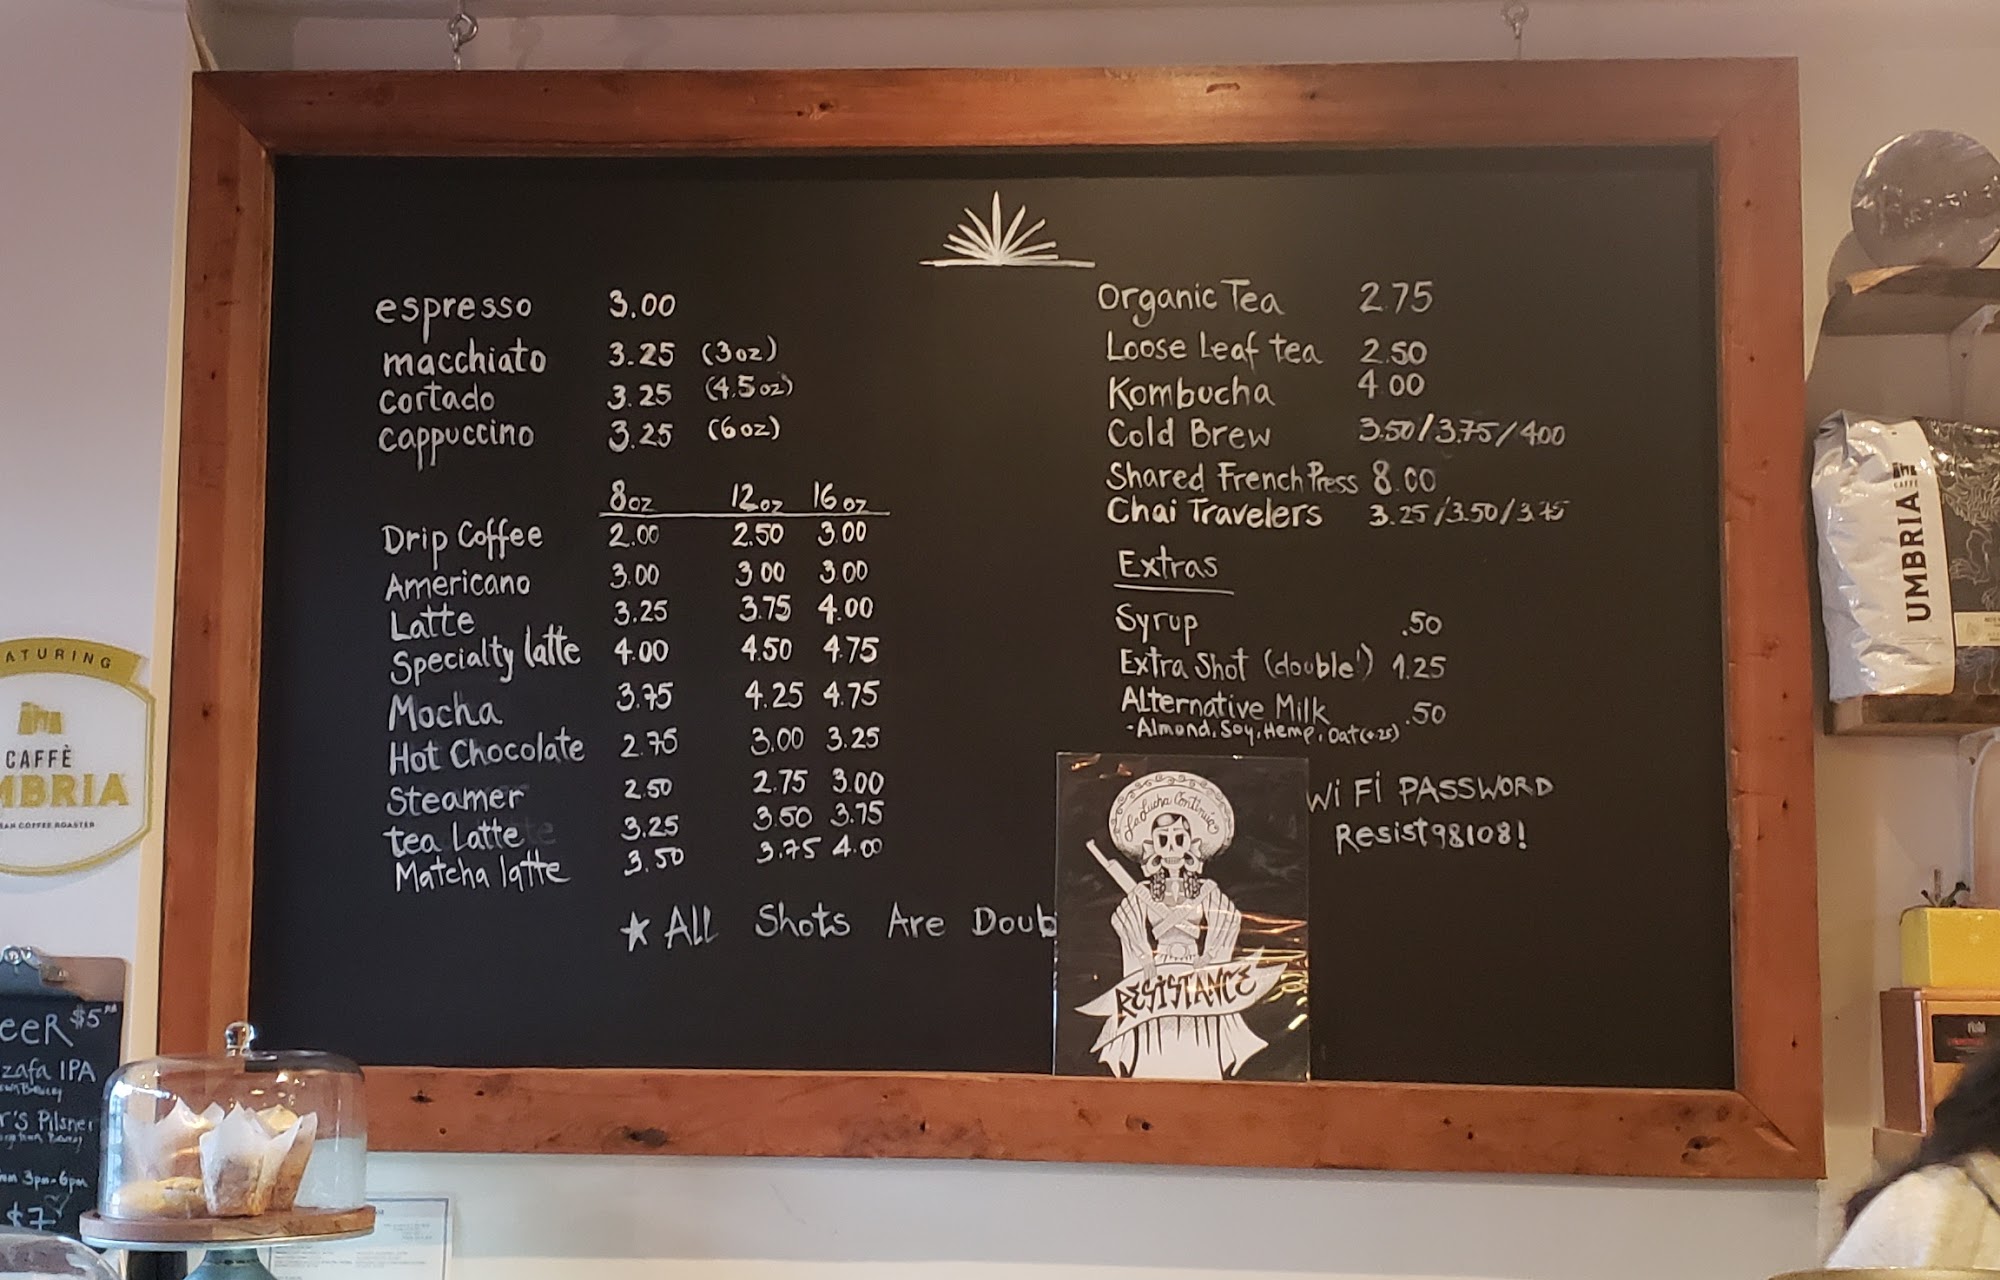 espresso 3.00
macchiato 3.25 (3oz)
cortado 3.25 (4.5oz)
cappuccino 3.25 (6oz)
8oz 12oz 16oz
Drip Coffee 2.00 2.50 3.00
Americano 3.00 3 00 3.00
Latte 3.25 3.75 4.00
Specialty latte 4.00 4.50 4.75
Mocha 3.75 4.25 4.75
Hot Chocolate 2.75 3.00 3.25
Steamer 2.50 2.75 3.00
tea Latte 3.25 3.50 3.75
Matcha latte 3.50 3.75 4.00
★ All Shots Are Doub
Organic Tea 2.75
Loose Leaf tea 2.50
Kombucha 4.00
Cold Brew 3.50/3.75/400
Shared French Press 8.00
Chai Travelers 3.25/3.50/3.75
Extras
Syrup .50
Extra Shot (double!) 1.25
Alternative Milk .50
-Almond, Soy, Hemp, Oat(+.25)
WiFi PASSWORD
Resist98108!
La Lucha Continua
RESISTANCE
ATURING
CAFFÈ
MBRIA
AN COFFEE ROASTER
eeR $5
zafa IPA
r's Pilsner
3pm-6pm
$7
UMBRIA